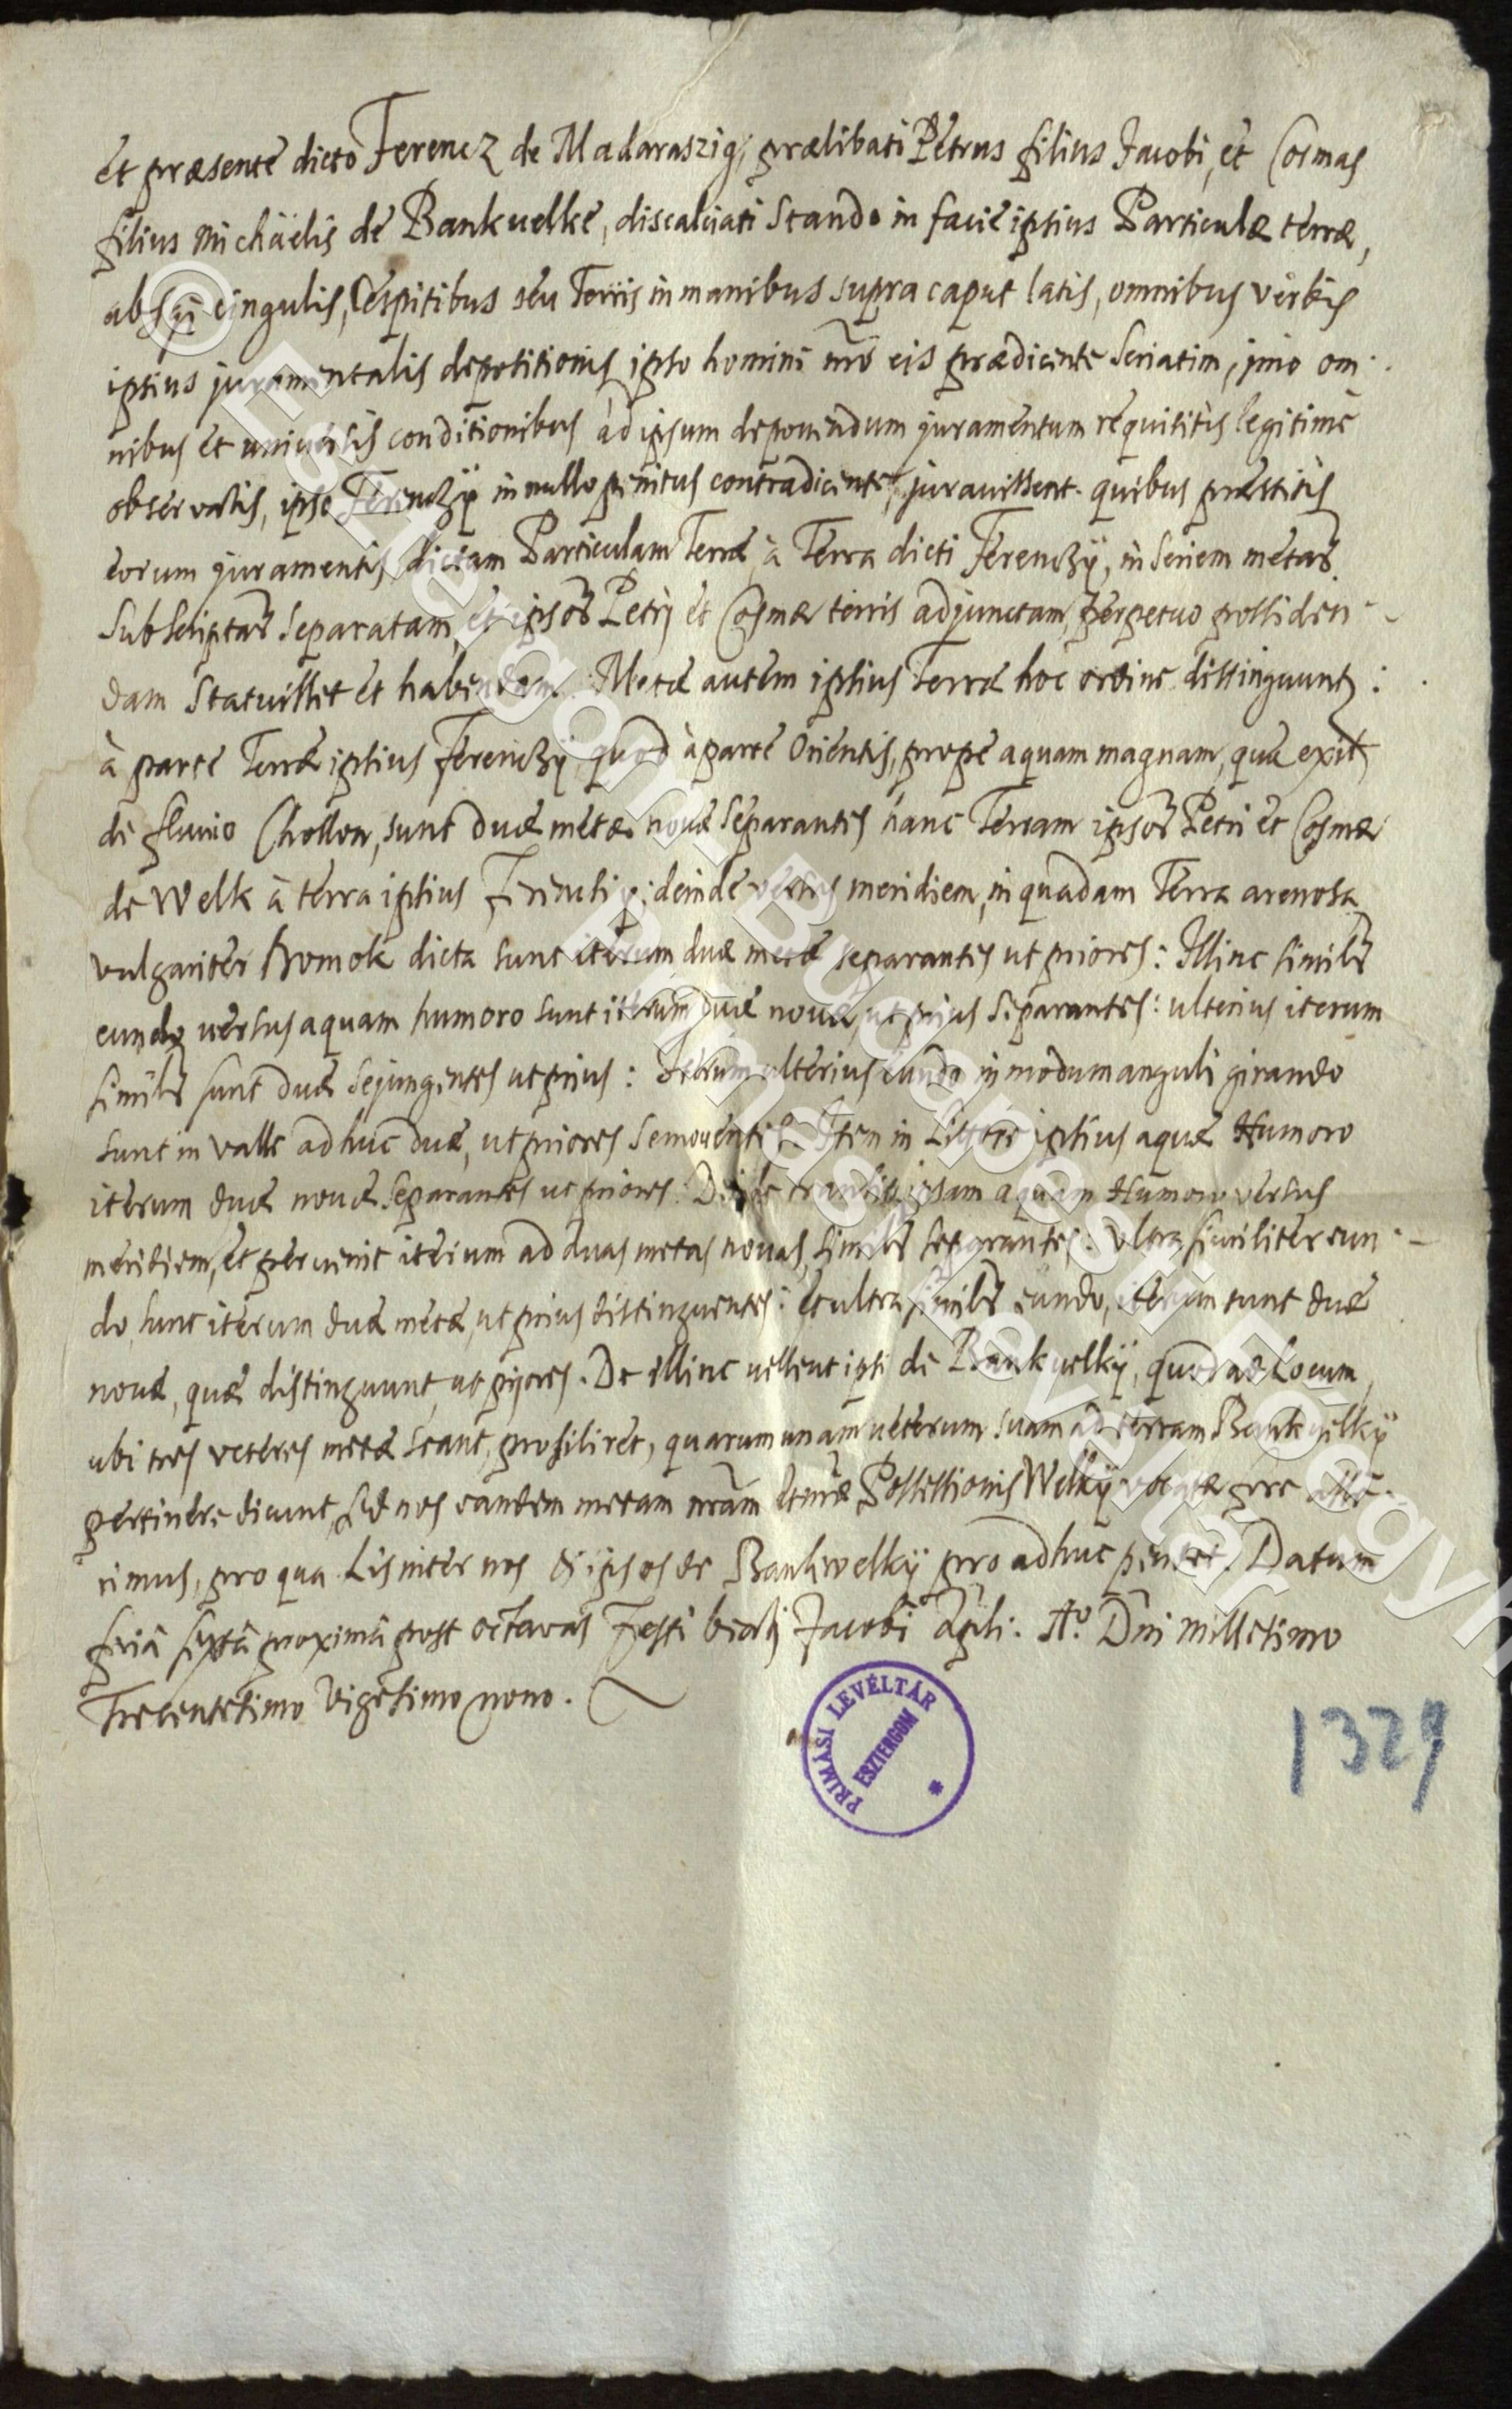 et præsente dicto Ferencz de Madaraszig, prælibati Petrus filius Jacobi, et Cosmas
filius Michäelis de Bankuelke, discalciati stando in facie ipsius Particulæ terræ,
absq; cingulis, Cespitibus seu Terris in manibus supra caput latis, omnibus verbis
ipsius juramentalis depositionis ipso homine nr̃o eis prædicente seriatim, imo om-
nibus et universis conditionibus ad ipsum deponendum juramentum requisitis legitime
observatis, ipso Ferenczÿ in nullo penitus contradicente, juravissent. quibus præstitis
eorum juramentis, dictam Particulam Terræ, à Terra dicti Ferenczÿ, in seriem metar̃
subscriptar̃ separatam, et ipsor̃ Petri et Cosmæ terris adjunctam, perpetuo possiden-
dam statuisset et habendam. Metæ autem ipsius Terræ hoc ordine distinguunt̃:
à parte Terræ ipsius Ferenczÿ, quod à parte Orientis, prope aquam magnam, quæ exit
de fluvio Chollou, sunt duæ metæ novæ separantes hanc Terram ipsor̃ Petri et Cosmæ
de Welk à terra ipsius Ferenczÿ: deinde versus meridiem, in quadam Terra arenosa
vulgariter homok dicta sunt iterum duæ metæ separantes ut priores: Illinc simil̃r
eundo versus aquam humoro sunt iterum duæ novæ, ut prius separantes: ulterius iterum
simil̃r sunt duæ sejungentes ut prius: Iterum ulterius eundo in modum anguli girando
sunt in valle adhuc duæ, ut priores semoventes. Item in Littore ipsius aquæ Humoro
iterum duæ novæ separantes ut priores: Deinde transit ipsam aquam Humoro versus
meridiem, et pervenit iterum ad duas metas novas, simil̃r separantes: Ultra similiter eun-
do, sunt iterum duæ metæ, ut prius distinguentes: et ultra simil̃r eundo, iterum sunt duæ
novæ, quæ distinguunt, ut priores. De illinc vellent ipsi de Bankuelkÿ, quod ad Locum,
ubi tres veteres metæ stant, prosiliret, quarum unam veterum suam ad terram Bankuelkÿ
pertinere dicunt, sed nos eandem metam nr̃am et nr̃æ Possessionis Welkÿ vocatæ fore asse-
rimus, pro qua Lis inter nos & ipsos de Bankwelkÿ pro adhuc pendet. Datum
feria sexta proxima post octavas Festi beati Jacobi Apl̃i. Aº. Dñi Millesimo
Trecentesimo Vigesimo nono.
PRIMÁSI LEVÉLTÁR
ESZTERGOM
1329
© Esztergom-Budapesti Főegyh
Prímási Levéltár